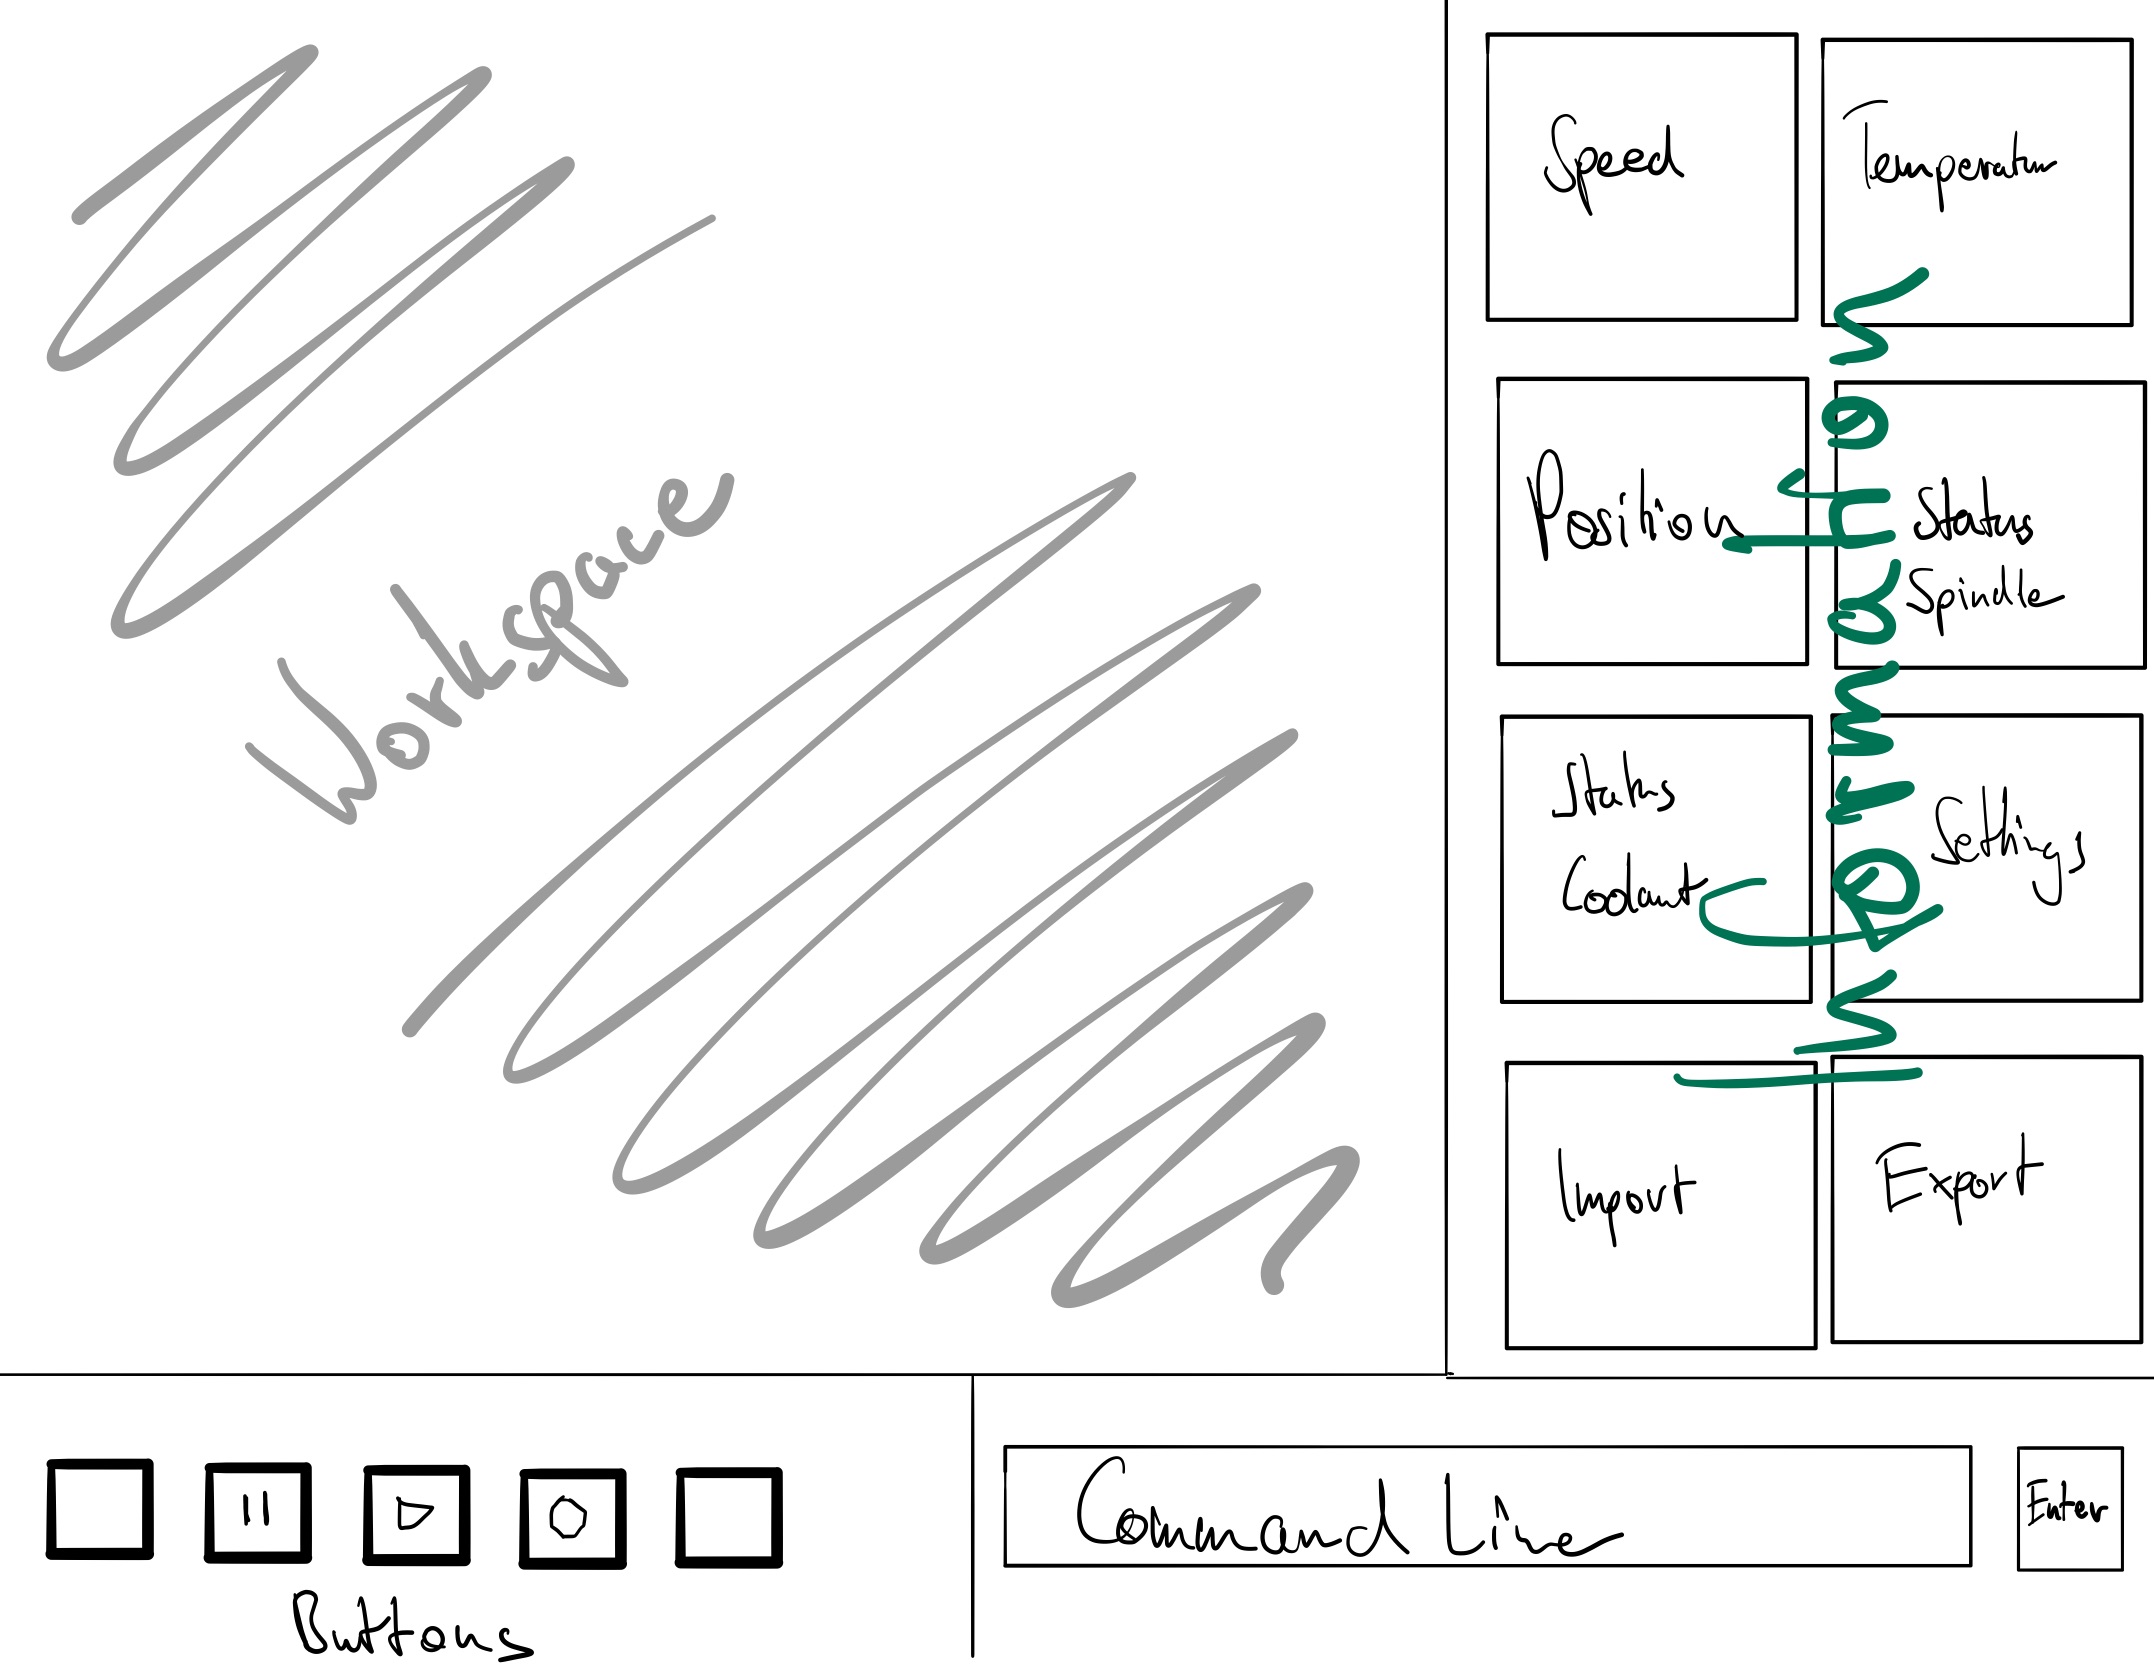 Speed
Temperatur
Position
Status
Spindle
Status
Coolant
Settings
Import
Export
Information
Workspace
Buttons
Command Line
Enter